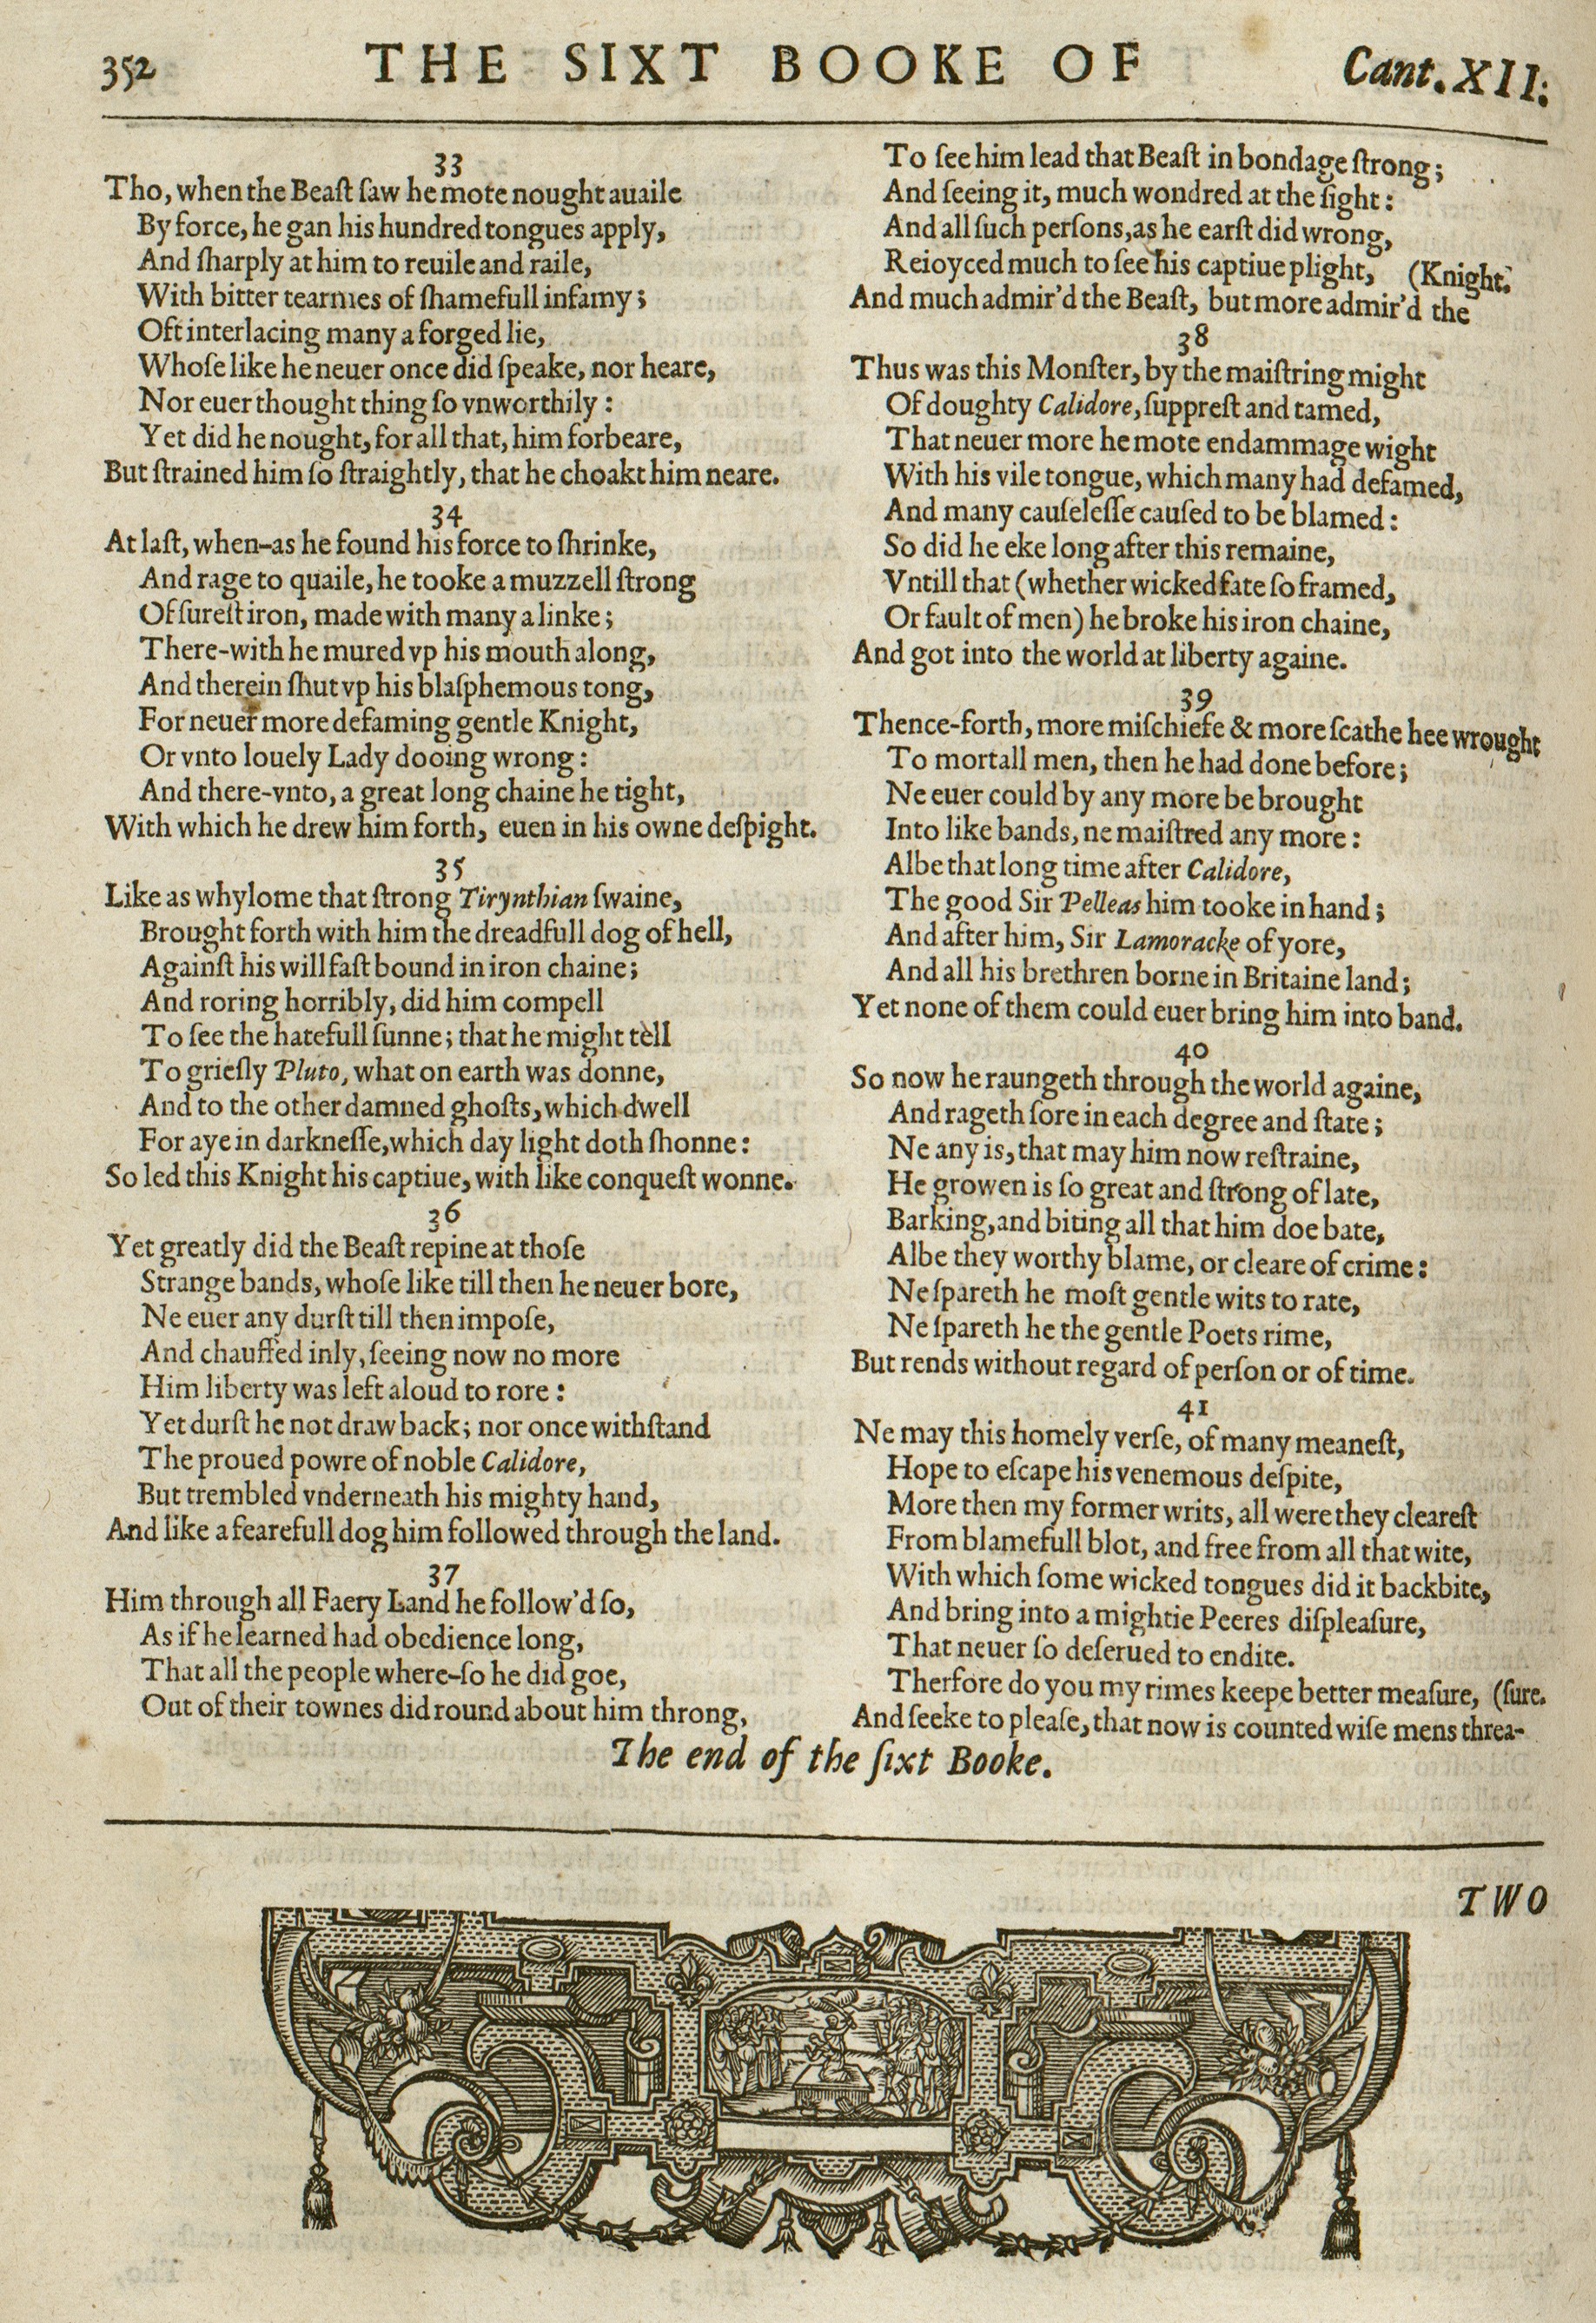 352 THE SIXT BOOKE OF Cant. XII:
33
Tho, when the Beaſt ſaw he mote nought auaile
By force, he gan his hundred tongues apply,
And ſharply at him to reuile and raile,
With bitter tearmes of ſhamefull infamy;
Oft interlacing many a forged lie,
Whoſe like he neuer once did ſpeake, nor heare,
Nor euer thought thing ſo vnworthily:
Yet did he nought, for all that, him forbeare,
But ſtrained him ſo ſtraightly, that he choakt him neare.
34
At laſt, when-as he found his force to ſhrinke,
And rage to quaile, he tooke a muzzell ſtrong
Of ſureſt iron, made with many a linke;
There-with he mured vp his mouth along,
And therein ſhut vp his blaſphemous tong,
For neuer more defaming gentle Knight,
Or vnto louely Lady dooing wrong:
And there-vnto, a great long chaine he tight,
With which he drew him forth, euen in his owne deſpight.
35
Like as whylome that ſtrong Tirynthian ſwaine,
Brought forth with him the dreadfull dog of hell,
Againſt his will faſt bound in iron chaine;
And roring horribly, did him compell
To ſee the hatefull ſunne; that he might tell
To grieſly Pluto, what on earth was donne,
And to the other damned ghoſts, which dwell
For aye in darkneſſe, which day light doth ſhonne:
So led this Knight his captiue, with like conqueſt wonne.
36
Yet greatly did the Beaſt repine at thoſe
Strange bands, whoſe like till then he neuer bore,
Ne euer any durſt till then impoſe,
And chauffed inly, ſeeing now no more
Him liberty was left aloud to rore:
Yet durſt he not draw back; nor once withſtand
The proued powre of noble Calidore,
But trembled vnderneath his mighty hand,
And like a fearefull dog him followed through the land.
37
Him through all Faery Land he follow'd ſo,
As if he learned had obedience long,
That all the people where-ſo he did goe,
Out of their townes did round about him throng,
To ſee him lead that Beaſt in bondage ſtrong;
And ſeeing it, much wondred at the ſight:
And all ſuch perſons, as he earſt did wrong,
Reioyced much to ſee his captiue plight, (Knight.
And much admir'd the Beaſt, but more admir'd the
38
Thus was this Monſter, by the maiſtring might
Of doughty Calidore, ſuppreſt and tamed,
That neuer more he mote endammage wight
With his vile tongue, which many had defamed,
And many cauſeleſſe cauſed to be blamed:
So did he eke long after this remaine,
Vntill that (whether wicked fate ſo framed,
Or fault of men) he broke his iron chaine,
And got into the world at liberty againe.
39
Thence-forth, more miſchiefe & more ſcathe hee wrought
To mortall men, then he had done before;
Ne euer could by any more be brought
Into like bands, ne maiſtred any more:
Albe that long time after Calidore,
The good Sir Pelleas him tooke in hand;
And after him, Sir Lamoracke of yore,
And all his brethren borne in Britaine land;
Yet none of them could euer bring him into band.
40
So now he raungeth through the world againe,
And rageth ſore in each degree and ſtate;
Ne any is, that may him now reſtraine,
He growen is ſo great and ſtrong of late,
Barking, and biting all that him doe bate,
Albe they worthy blame, or cleare of crime:
Ne ſpareth he moſt gentle wits to rate,
Ne ſpareth he the gentle Poets rime,
But rends without regard of perſon or of time.
41
Ne may this homely verſe, of many meaneſt,
Hope to eſcape his venemous deſpite,
More then my former writs, all were they cleareſt
From blamefull blot, and free from all that wite,
With which ſome wicked tongues did it backbite,
And bring into a mightie Peeres diſpleaſure,
That neuer ſo deſerued to endite.
Therfore do you my rimes keepe better meaſure, (ſure.
And ſeeke to pleaſe, that now is counted wiſe mens threa-
The end of the ſixt Booke.
TWO